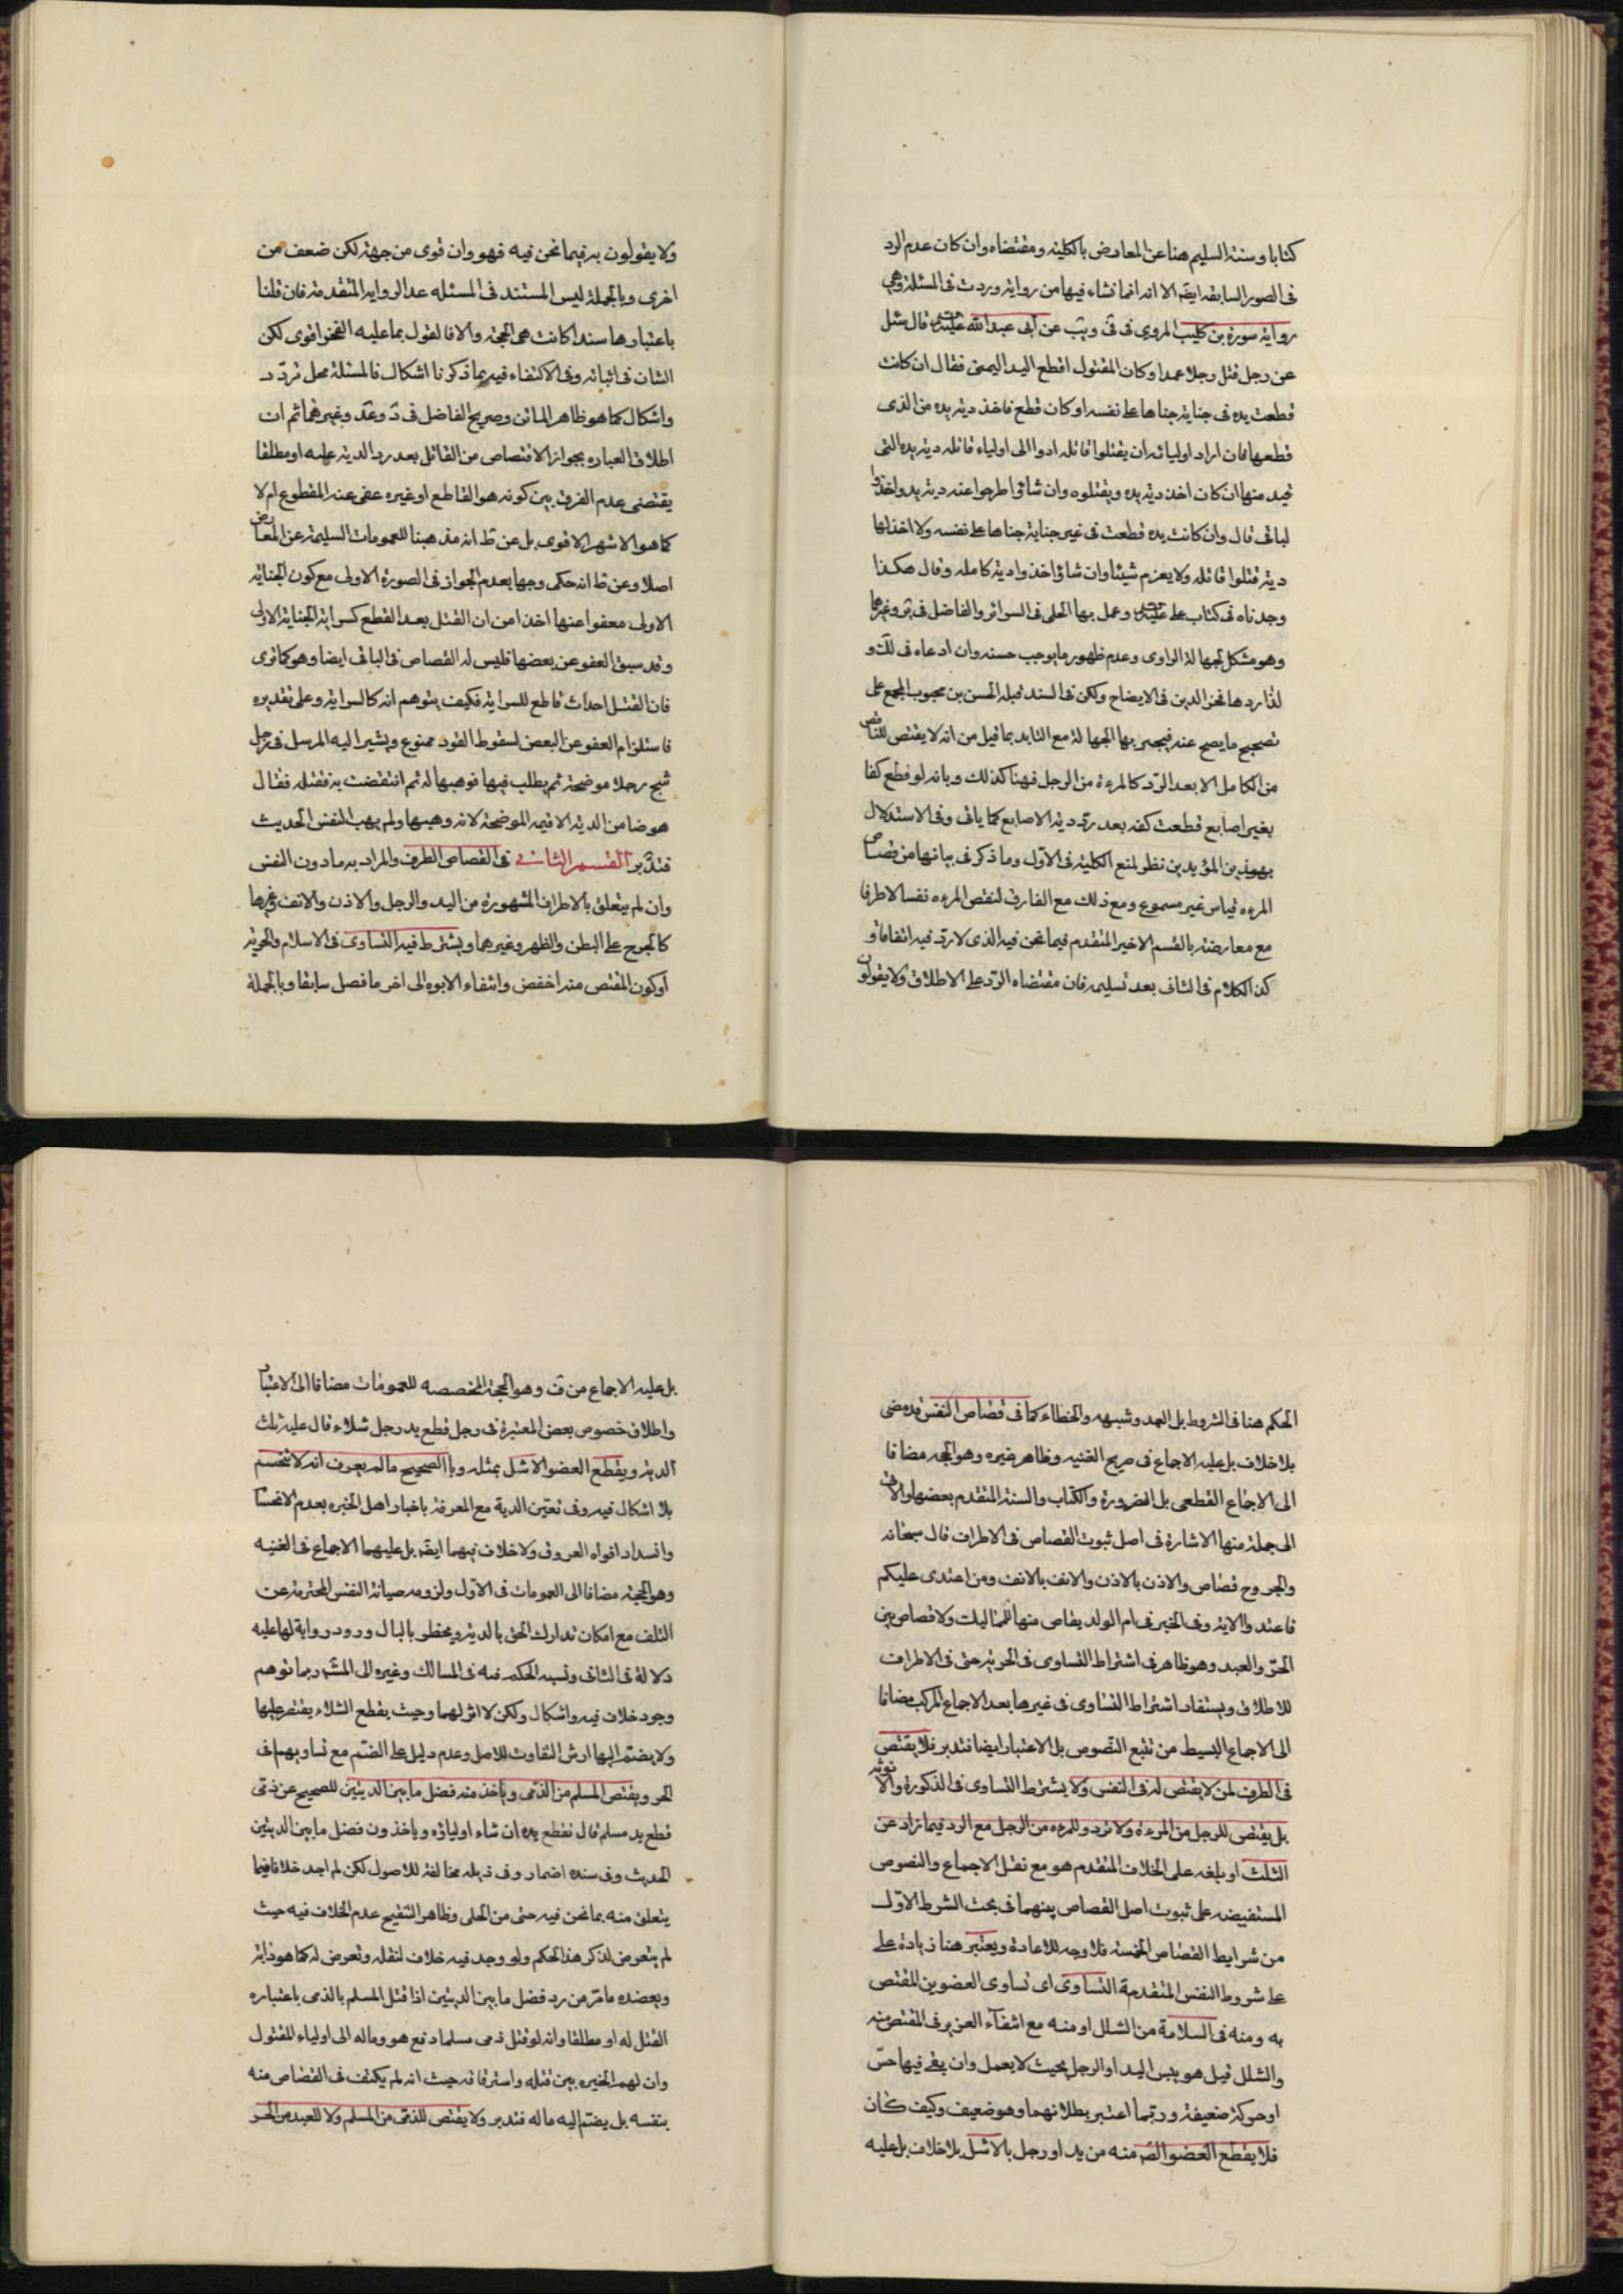 كتابا وسنة السليم هنا عن المعارض بالكلية ومقتضاه وان كان عدم الرد
فى الصور السابقه ايضا الا انه انما نشاء فيها من رواية وردت فى المسئلة وهي
رواية سورة بن كليب المروى فى فى ويب عن ابى عبد الله قال سئل
عن رجل قتل رجلا عمدا وكان المقتول اقطع اليد اليمنى فقال ان كانت
قطعت يده فى جناية جناها على نفسه او كان قطع فاخذ دية يده من الذى
قطعها فان اراد اوليائه ان يقتلوا قاتله ادوا الى اولياء قاتله دية يده التى
قيد منها ان كان اخذ دية يده ويقتلوه وان شاؤا طرحوا عنه دية يد واخذوا
الباقى قال وان كانت يده قطعت فى غير جناية جناها على نفسه ولا اخذ لها
دية قتلوا قاتله ولا يغرم شيئا وان شاؤا اخذوا دية كامله وقال هكذا
وجدناه فى كتاب على وعمل بها الحلى فى السرائر والفاضل فى وغيرها
وهو مشكل لجهالة الراوى وعدم ظهور ما يوجب حسنه وان ادعاه فى لك و
لذا ردها فخر الدين فى الايضاح ولكن فى السند قبله الحسن بن محبوب المجمع على
تصحيح ما يصح عنه فيجبر بها الجهالة مع التايد بما قيل من انه لا يقتص للناقص
من الكامل الا بعد الرد كالمرءة من الرجل فهنا كذلك وبانه لو قطع كفا
بغير اصابع قطعت كفه بعد رد دية الاصابع كما ياتى وفى الاستدلال
بهذين المؤيدين نظر لمنع الكلية فى الاول وما ذكر فى بيانها من قصاص
المرءه قياس غير مسموع ومع ذلك مع الفارق لنقص المرءه نفسا لا طرفا
مع معارضته بالقسم الاخير المتقدم فيما نحن فيه الذى لا رد فيه اتفاقا و
كذا الكلام فى الثانى بعد تسليمه فان مقتضاه الرد على الاطلاق ولا يقولون
ولا يقولون به فيما نحن فيه فهو وان قوى من جهة لكن ضعف من
اخرى وبالجملة ليس المستند فى المسئله عدا الروايه المتقدمة فان قلنا
باعتبارها سندا كانت هى الحجة والا فالقول بما عليه الفخر اقوى لكن
الشان فى اثباته وفى الاكتفاء فيه بما ذكرنا اشكال فالمسئلة محل تردد
واشكال كما هو ظاهر الماتن وصريح الفاضل فى د وعد وغيرهما ثم ان
اطلاق العباره بجواز الاقتصاص من القاتل بعد رد الدية عليه او مطلقا
يقتضى عدم الفرق بين كونه هو القاطع او غيره عفى عنه المقطوع ام لا
كما هو الاشهر الاقوى بل عن ط انه مذهبنا للعمومات السليمة عن المعارض
اصلا وعن ط انه حكى وجها بعدم الجواز فى الصورة الاولى مع كون الجناية
الاولى معفوا عنها اخذا من ان القتل بعد القطع كسراية الجناية الاولى
وقد سبق العفو عن بعضها فليس له القصاص فى الباقى ايضا وهو كما ترى
فان القتل احداث قاطع للسراية فكيف يتوهم انه كالسراية وعلى تقديره
فاستلزام العفو عن البعض لسقوط القود ممنوع ويشير اليه المرسل فى رجل
شج رجلا موضحة ثم يطلب فيها فوهبها له ثم انتقضت به فقتله فقال
هو ضامن الدية الا قيمة الموضحة لانه وهبها ولم يهب النفس الحديث
فتدبر القسم الثانى فى القصاص الطرف والمراد به ما دون النفس
وان لم يتعلق بالاطراف المشهورة من اليد والرجل والاذن والانف وغيرها
كالجرح على البطن والظهر وغيرهما ويشترط فيه التساوى فى الاسلام والحرية
او كون المقتص منه اخفض وانتفاء الابوه الى اخر ما فصل سابقا وبالجملة
الحكم هنا فى الشروط بل العمد وشبهه والخطاء كما فى قصاص النفس قد مضى
بلا خلاف بل عليه الاجماع فى صريح الغنيه وظاهر غيره وهو الحجة مضافا
الى الاجماع القطعى بل الضرورة والكتاب والسنة المتقدم بعضها والاتى
الى جملة منها الاشارة فى اصل ثبوت القصاص فى الاطراف قال سبحانه
والجروح قصاص والاذن بالاذن والانف بالانف ومن اعتدى عليكم
فاعتدوا الاية وفى الخبر فى ام الولد يقاص منها للمماليك ولا قصاص بين
الحر والعبد وهو ظاهر فى اشتراط التساوى فى الحرية حتى فى الاطراف
للاطلاق ويستفاد اشتراط التساوى فى غيرها بعد الاجماع المركب مضافا
الى الاجماع البسيط من تتبع النصوص بل الاعتبار ايضا فتدبر فلا يقتص
فى الطرف لمن لا يقتص له فى النفس ولا يشترط التساوى فى الذكورة والانوثه
بل يقتص للرجل من المرءة ولا ترد وللمرءه من الرجل مع الرد فيما زاد عن
الثلث او بلغه على الخلاف المتقدم هو مع نقل الاجماع والنصوص
المستفيضه على ثبوت اصل القصاص بينهما فى بحث الشرط الاول
من شرايط القصاص الخمسة فلا وجه للاعادة ويعتبر هنا زيادة على
على شروط النفس المتقدمة التساوى اى تساوى العضوين المقتص
به ومنه فى السلامة من الشلل او منه مع انتفاء العزير فى المقتص منه
والشلل قيل هو يبس اليد او الرجل بحيث لا يعمل وان بقى فيها حس
او حركة ضعيفة وربما اعتبر بطلانهما وهو ضعيف وكيف كان
فلا يقطع العضو الصح منه من يد او رجل بالاشل بلا خلاف بل عليه
بل عليه الاجماع من ف وهو الحجة المخصصه للعمومات مضافا الى الاعتبار
واطلاق خصوص بعض المعتبرة فى رجل قطع يد رجل شلاء قال عليه ثلث
الدية ويقطع العضو الاشل بمثله وبالصحيح ما لم يعرف انه لا تنحسم
بلا اشكال فيه وفى تعين الدية مع المعرفة باخبار اهل الخبره بعدم الانحسام
وانسداد افواه العروق ولا خلاف فيهما ايضا بل عليهما الاجماع فى الغنيه
وهو الحجة مضافا الى العمومات فى الاول ولزومه صيانة النفس المحترمة عن
التلف مع امكان تدارك الحق بالدية ويخطر بالبال ورود رواية لها عليه
دلالة فى الثانى ونسبه الحكم فيه فى المسالك وغيره الى المش ربما توهم
وجود خلاف فيه واشكال ولكن لا اثر لهما وحيث يقطع الشلاء يقتصر عليها
ولا يضم اليها ارش التفاوت للاصل وعدم دليل على الضم مع تساويهما فى
الحر ويقتص المسلم من الذمى وياخذ منه فضل ما بين الديتين للصحيح عن ذمى
قطع يد مسلم قال تقطع يده ان شاء اولياؤه وياخذون فضل ما بين الديتين
الحديث وفى سنده اضمار وفى ذيله مخالفة للاصول لكن لم اجد خلافا فيما
يتعلق منه بما نحن فيه حتى من الحلى وظاهر التنقيح عدم الخلاف فيه حيث
لم يتعرض لذكر هذا الحكم ولو وجد فيه خلاف لنقله وتعرض له كما هو دابه
ويعضده ما مر من رد فضل ما بين الديتين اذا قتل المسلم بالذمى باعتباره
القتل له او مطلقا وانه لو قتل ذمى مسلما دفع هو وماله الى اولياء المقتول
وان لهم الخيره بين قتله واسترقاقه حيث انه لم يكتف فى القصاص منه
بنفسه بل يضم اليه ماله فتدبر ولا يقتص للذمى من المسلم ولا للعبد من الحر